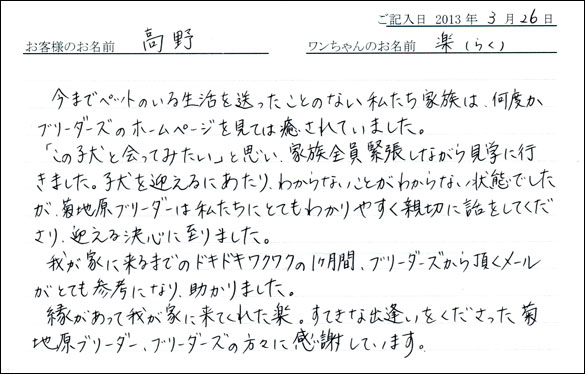 ご記入日 2013年 3月26日
お客様のお名前 高野 ワンちゃんのお名前 楽(らく)
今までペットのいる生活を送ったことのない私たち家族は、何度か
ブリーダーズのホームページを見ては癒されていました。
「この子犬と会ってみたい」と思い、家族全員緊張しながら見学に行
きました。子犬を迎えるにあたり、わからないことがわからない状態でした
が、菊地原ブリーダーは私たちにとてもわかりやすく親切に話をしてくだ
さり、迎える決心に至りました。
我が家に来るまでのドキドキワクワクの1ヶ月間、ブリーダーズから頂くメール
がとても参考になり、助かりました。
縁があって我が家に来てくれた楽。すてきな出逢いをくださった菊
地原ブリーダー、ブリーダーズの方々に感謝しています。